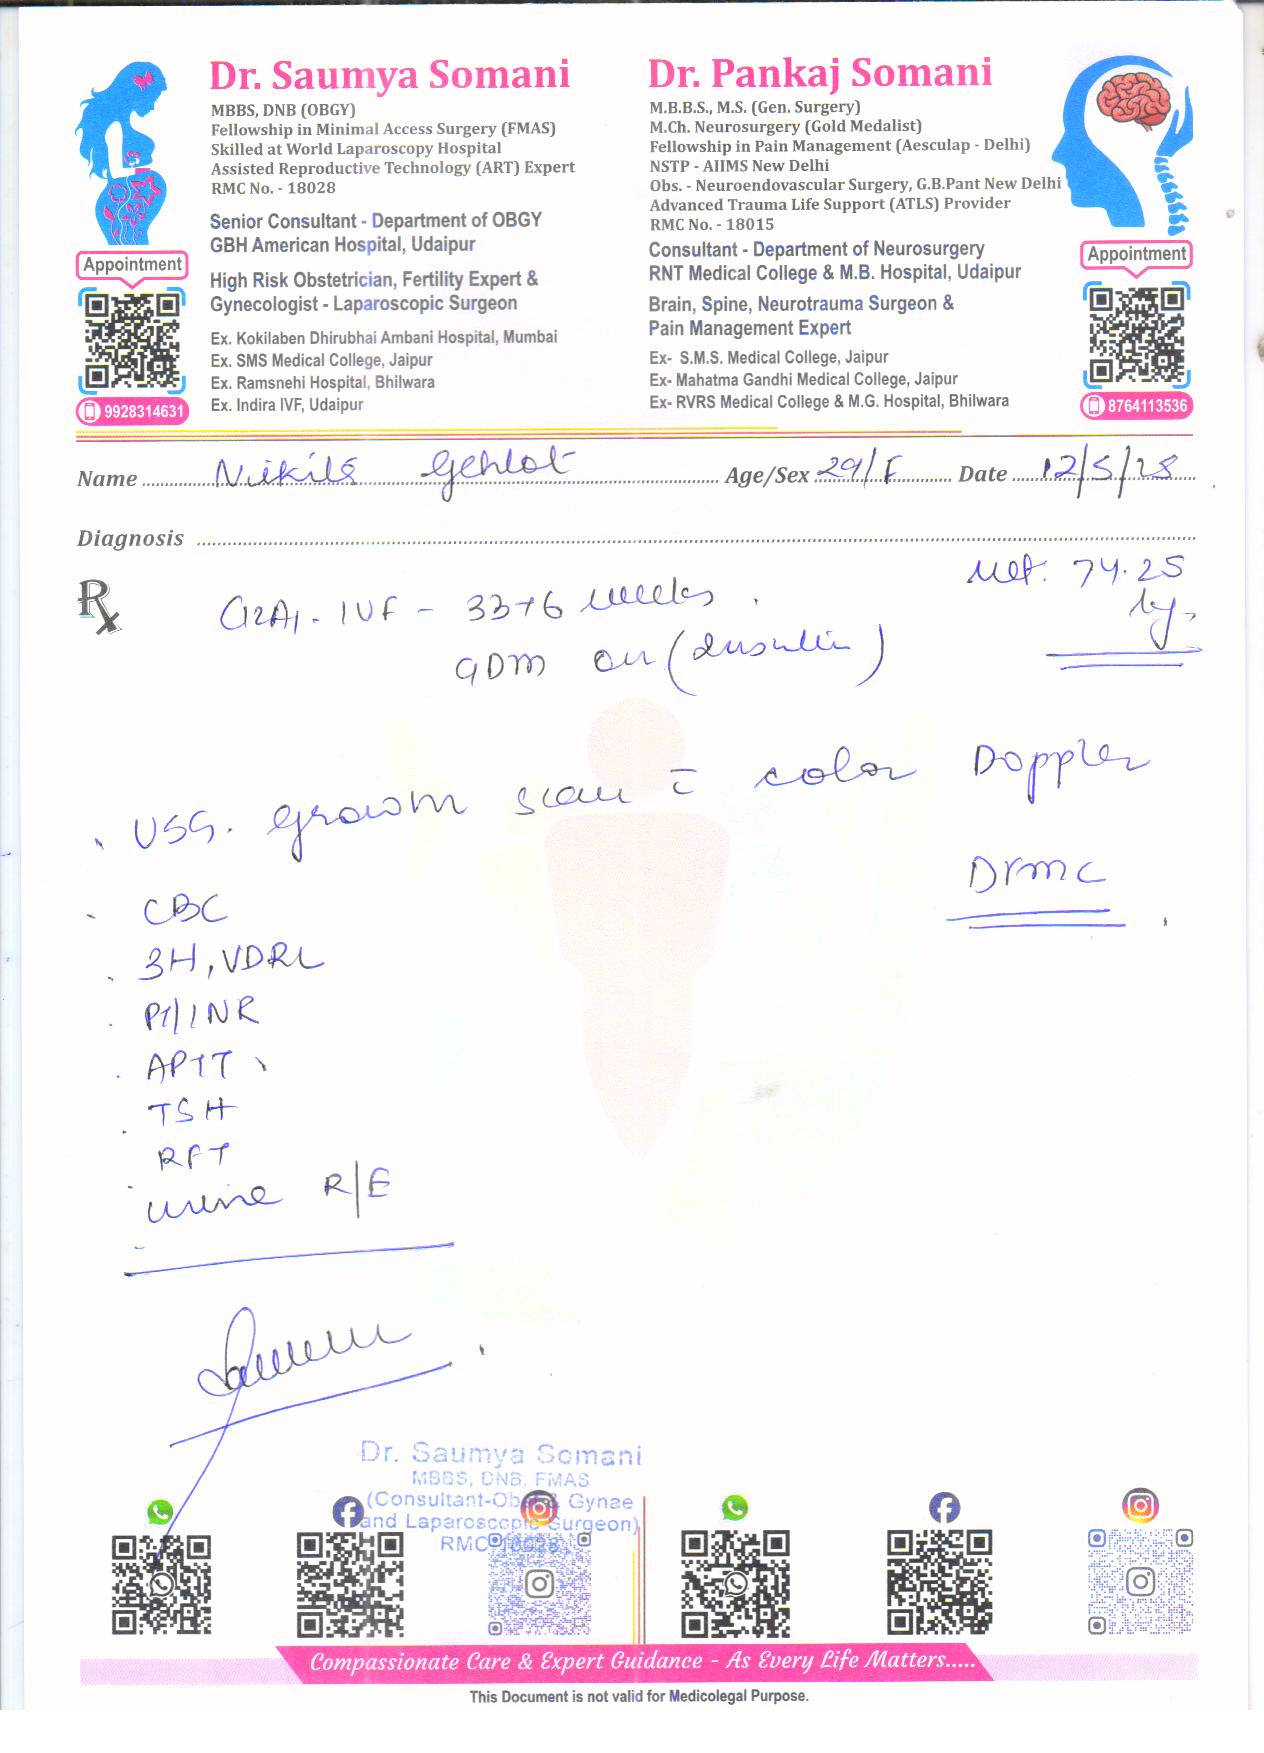 Dr. Saumya Somani
MBBS, DNB (OBGY)
Fellowship in Minimal Access Surgery (FMAS)
Skilled at World Laparoscopy Hospital
Assisted Reproductive Technology (ART) Expert
RMC No. - 18028
Senior Consultant - Department of OBGY
GBH American Hospital, Udaipur
High Risk Obstetrician, Fertility Expert &
Gynecologist - Laparoscopic Surgeon
Ex. Kokilaben Dhirubhai Ambani Hospital, Mumbai
Ex. SMS Medical College, Jaipur
Ex. Ramsnehi Hospital, Bhilwara
Ex. Indira IVF, Udaipur
Appointment
9928314631
Dr. Pankaj Somani
M.B.B.S., M.S. (Gen. Surgery)
M.Ch. Neurosurgery (Gold Medalist)
Fellowship in Pain Management (Aesculap - Delhi)
NSTP - AIIMS New Delhi
Obs. - Neuroendovascular Surgery, G.B.Pant New Delhi
Advanced Trauma Life Support (ATLS) Provider
RMC No. - 18015
Consultant - Department of Neurosurgery
RNT Medical College & M.B. Hospital, Udaipur
Brain, Spine, Neurotrauma Surgeon &
Pain Management Expert
Ex- S.M.S. Medical College, Jaipur
Ex- Mahatma Gandhi Medical College, Jaipur
Ex- RVRS Medical College & M.G. Hospital, Bhilwara
Appointment
8764113536
Name Gehlot Age/Sex 29/F Date 12/5/25
Diagnosis
Rx
74.25
G2A1 - IVF - 33+6 weeks.
GDM on (Insulin)
USG. growth scan c̄ color Doppler
CBC
3H, VDRL
PT/INR
APTT
TSH
RFT
urine R/E
Dr. Saumya Somani
MBBS, DNB, FMAS
(Consultant-Obst & Gynae
and Laparoscopic Surgeon)
Compassionate Care & Expert Guidance - As Every Life Matters.....
This Document is not valid for Medicolegal Purpose.